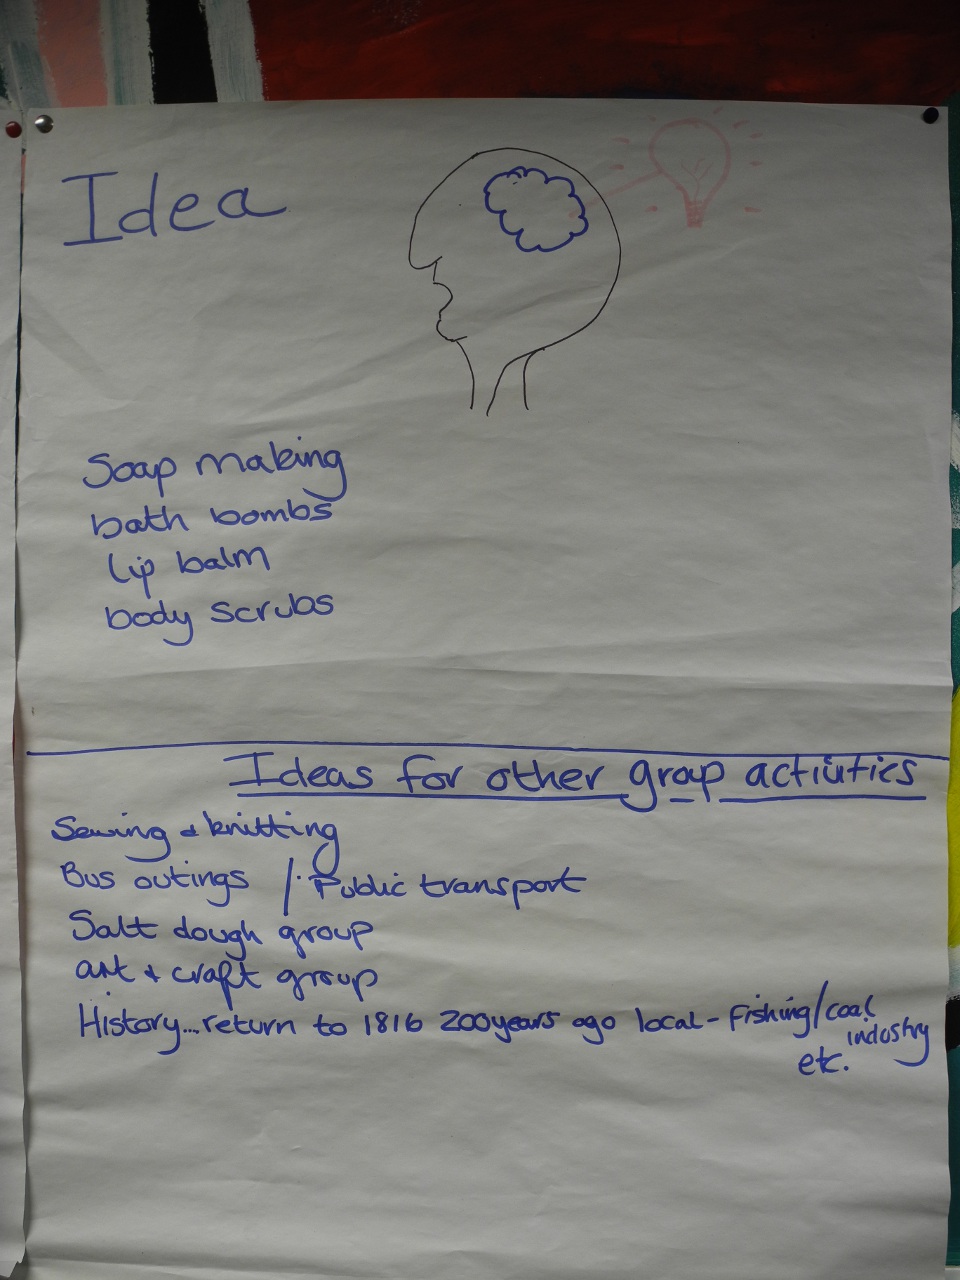 Idea
Soap making
bath bombs
lip balm
body scrubs
Ideas for other group activities
Sewing & knitting
Bus outings / Public transport
Salt dough group
art + craft group
History...return to 1816 200years ago local - Fishing/coal
industry
etc.